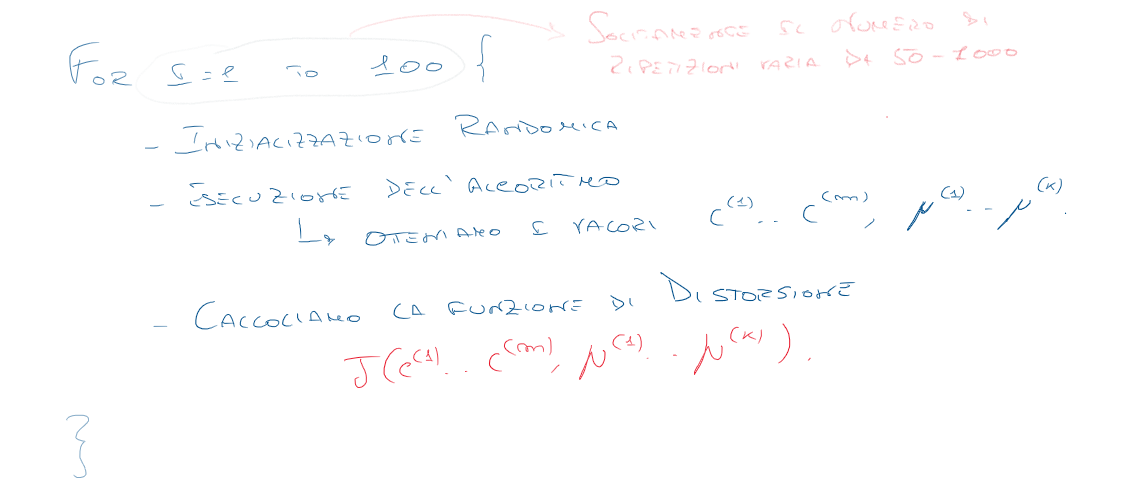 SOLITAMENTE IL NUMERO DI
RIPETIZIONI VARIA DA 50-1000
FOR I=1 TO 100 {
- INIZIALIZZAZIONE RANDOMICA
- ESECUZIONE DELL'ALGORITMO
↳ OTTENIAMO I VALORI c^(1) .. c^(m), μ^(1) .. μ^(K).
- CALCOLIAMO LA FUNZIONE DI DISTORSIONE
J(c^(1) .. c^(m), μ^(1) .. μ^(K)).
}